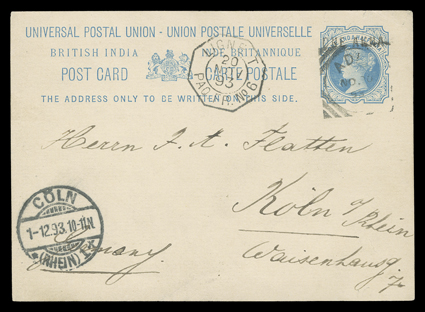 UNIVERSAL POSTAL UNION - UNION POSTALE UNIVERSELLE
BRITISH INDIA INDE BRITANNIQUE
POST CARD CARTE POSTALE
THE ADDRESS ONLY TO BE WRITTEN ON THIS SIDE.
ONE ANNA
LIGNE T
20
NOV
93
PAQ. FR. No 6
Herrn J. A. Flatten
Köln a/Rhein
Waisenhausg
Germany
CÖLN
1-12.93.10-11N
(RHEIN)